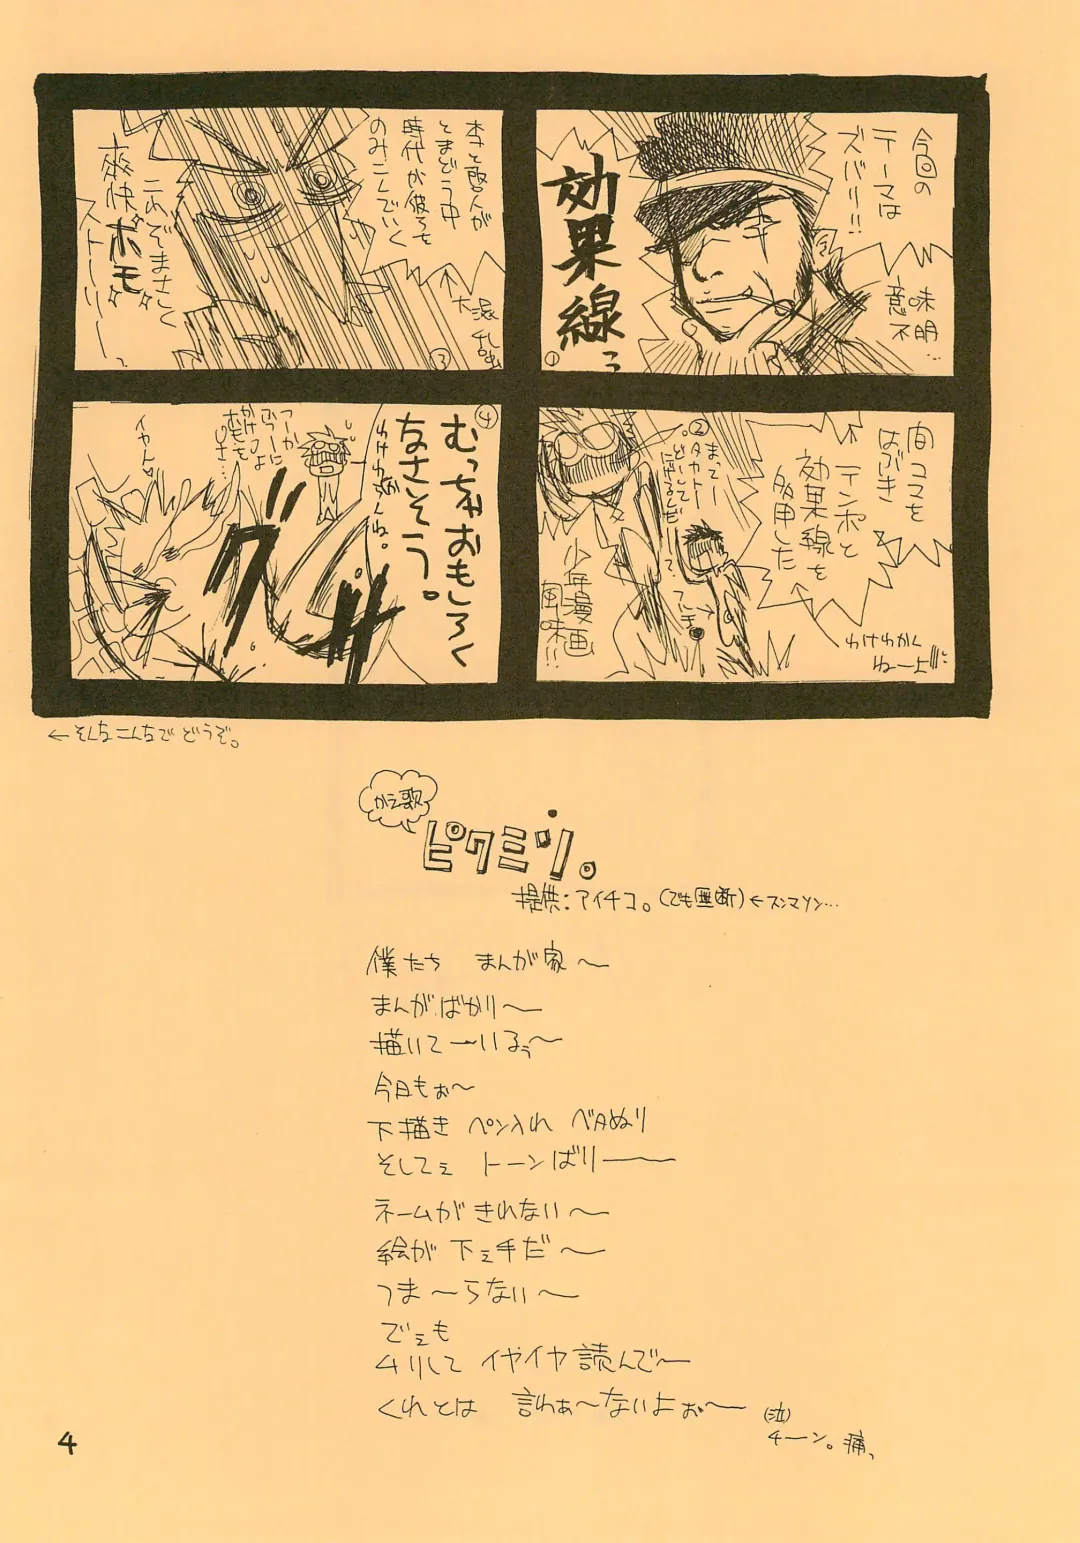 今回の
テーマは
ズバリ!!
効果線っ
意味
不明…
①
間コマを
はぶき
テンポと
効果線を
多用した
②
まってー
タカトー
どーして
にげるんだーって
少年漫画
風味!!
わけわかく
ねーよ!!!
とまどう中
時代が彼らを
のみこんでいく
大混乱
③
これぞまさしく
爽快"ホモ"
ストーリーっ
④
むっちゃおもしろく
なさそう。
わけわかんね。
つーか
ふつーに
かけってよ
ホモも
イヤん
グサ
←そんなこんなで どうぞ。
かえ歌
ピクミン。
提供:アイチコ。(でも無断)←スンマソン…
僕たち まんが家〜
まんがばかり〜
描いてーいるぅ〜
今日もぉ〜
下描き ペン入れ ベタぬり
そしてぇ トーンばり——〜
ネームがきれない〜
絵が 下ぇ手だ〜
つま〜らない〜
でぇも
ムリして イヤイヤ読んで〜
くれとは 言わぁ〜ないよぉ〜
(泣)
チーン。痛っ
4